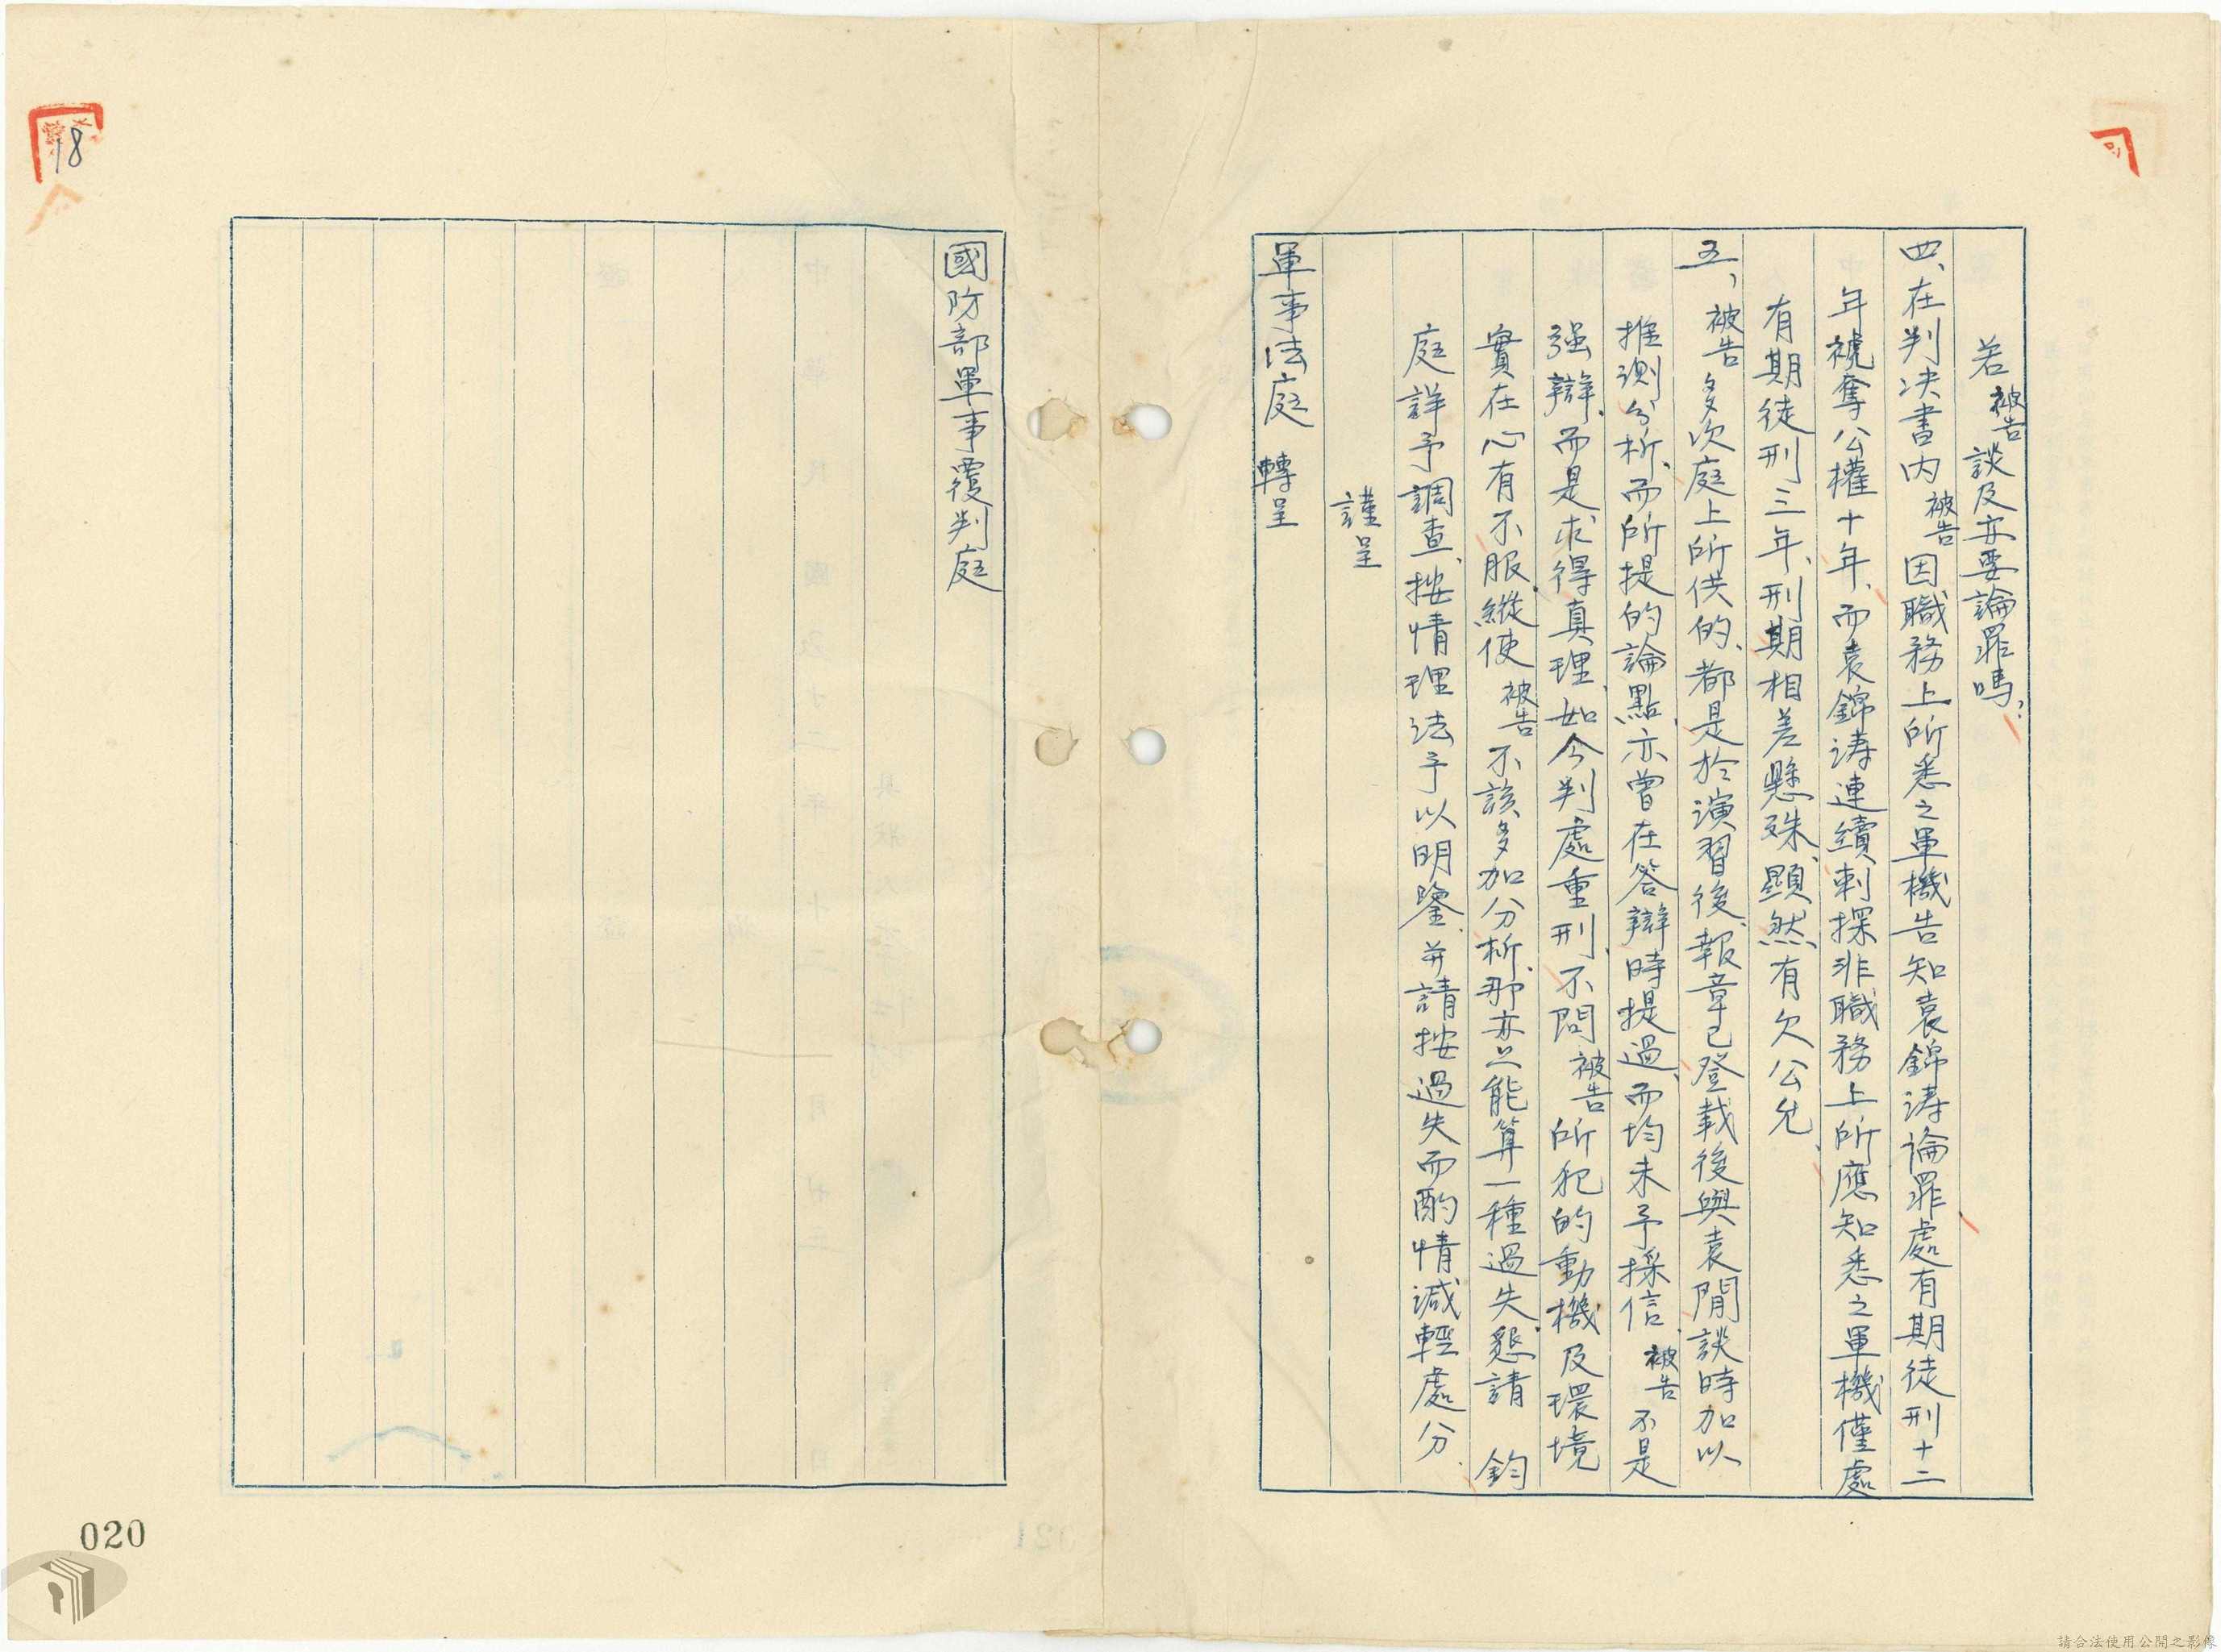 若被告談及亦要論罪嗎?
四、在判决書内被告因職務上所悉之軍機告知袁錦濤論罪處有期徒刑十二
年褫奪公權十年、而袁錦濤連續刺探非職務上所應知悉之軍機僅處
有期徒刑三年、刑期相差懸殊、顯然有欠公允、
五、被告多次庭上所供的、都是於演習後、報章已登載後與袁閒談時加以
推測分析、而所提的論點、亦曾在答辯時提過、而均未予採信、被告不是
强辯、而是求得真理、如今判處重刑、不問被告所犯的動機及環境
實在心有不服、縱使被告不該多加分析、那亦只能算一種過失、懇請 鈞
庭詳予調查、按情理法予以明鑒、并請按過失而酌情減輕處分、
謹呈
軍事法庭 轉呈
國防部軍事覆判庭
18
020
請合法使用公開之影像